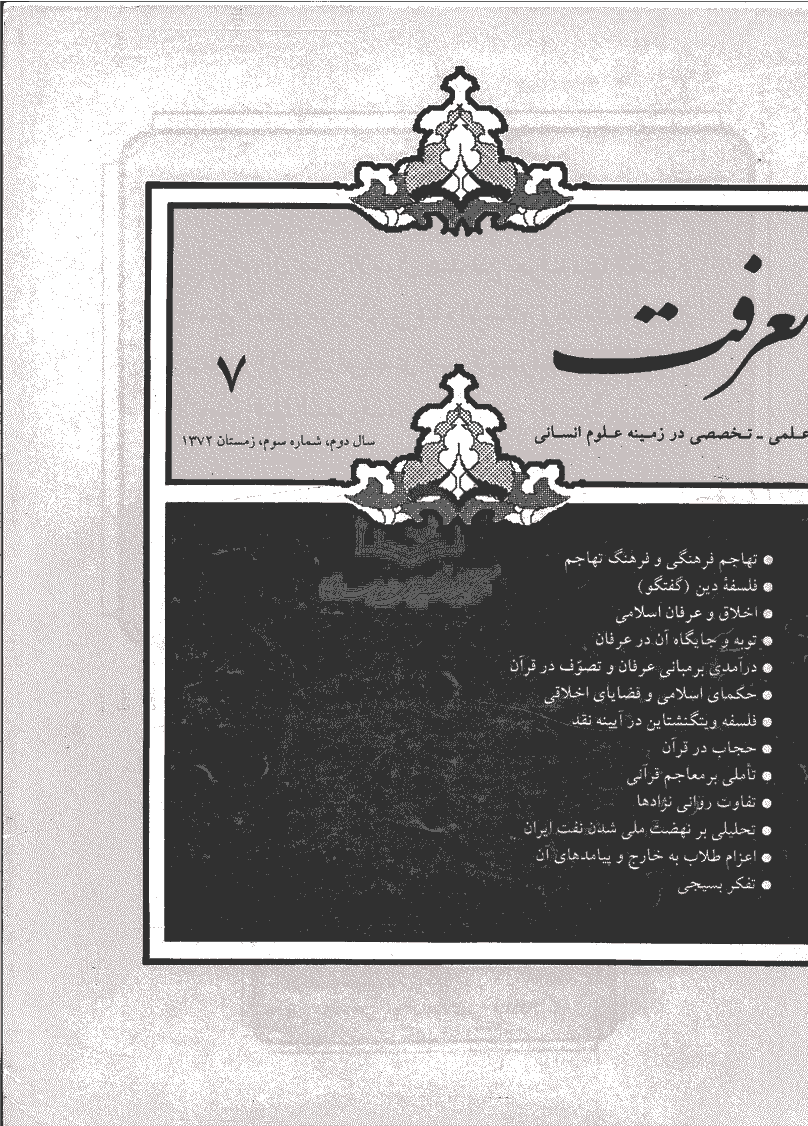 معرفت
۷
علمی ـ تخصصی در زمینه علوم انسانی
سال دوم، شماره سوم، زمستان ۱۳۷۲
● تهاجم فرهنگی و فرهنگ تهاجم
● فلسفهٔ دین (گفتگو)
● اخلاق و عرفان اسلامی
● توبه و جایگاه آن در عرفان
● درآمدی بر مبانی عرفان و تصوّف در قرآن
● حکمای اسلامی و قضایای اخلاقی
● فلسفه ویتگنشتاین در آیینه نقد
● حجاب در قرآن
● تأملی بر معاجم قرآنی
● تفاوت روانی نژادها
● تحلیلی بر نهضت ملی شدن نفت ایران
● اعزام طلاب به خارج و پیامدهای آن
● تفکر بسیجی